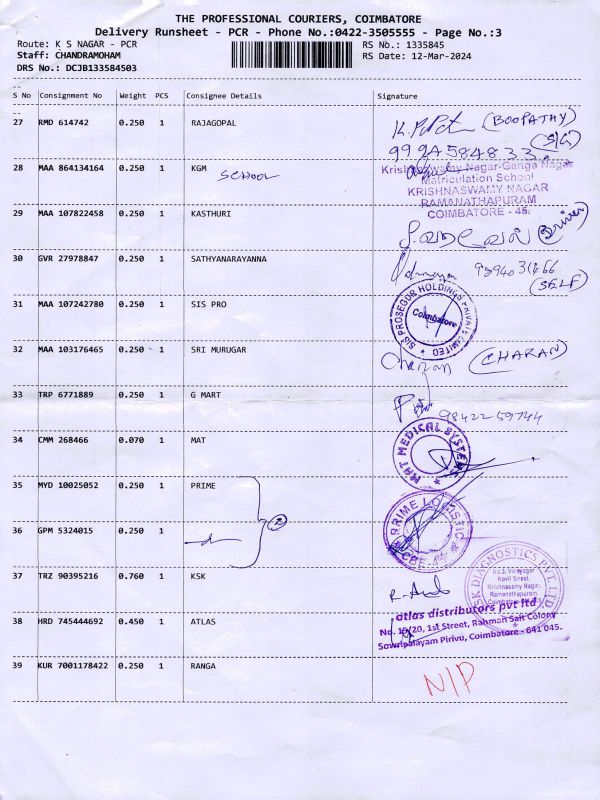 THE PROFESSIONAL COURIERS, COIMBATORE
Delivery Runsheet - PCR - Phone No.:0422-3505555 - Page No.:3
Route: K S NAGAR - PCR
Staff: CHANDRAMOHAM
DRS No.: DCJB133584503
RS No.: 1335845
RS Date: 12-Mar-2024
S No Consignment No Weight PCS Consignee Details Signature
27 RMD 614742 0.250 1 RAJAGOPAL
(BOOPATHY)
(S/G)
9994584833
28 MAA 864134164 0.250 1 KGM
SCHOOL
Krishnaswamy Nagar-Ganga Nagar
Matriculation School
KRISHNASWAMY NAGAR
RAMANATHAPURAM
COIMBATORE - 45.
29 MAA 107822458 0.250 1 KASTHURI
(Driver)
30 GVR 27978847 0.250 1 SATHYANARAYANNA
(SELF)
31 MAA 107242780 0.250 1 SIS PRO
SIS PROSEGUR HOLDINGS PRIVATE LIMITED
Coimbatore
32 MAA 103176465 0.250 1 SRI MURUGAR
Charan (CHARAN)
33 TRP 6771889 0.250 1 G MART
9842259744
34 CMM 268466 0.070 1 MAT
MAT MEDICAL SYSTEMS
35 MYD 10025052 0.250 1 PRIME
PRIME LOGISTIC
CBE-4
36 GPM 5324015 0.250 1
2
37 TRZ 90395216 0.760 1 KSK
SK DIAGNOSTICS PVT. LTD.
No.3, Vinayagar
Kovil Street,
Krishnasamy Nagar,
Ramanathapuram,
38 HRD 745444692 0.450 1 ATLAS
atlas distributors pvt ltd
No. 19/20, 1st Street, Rahman Sait Colony
Sowripalayam Pirivu, Coimbatore - 641 045.
39 KUR 7001178422 0.250 1 RANGA
N/P